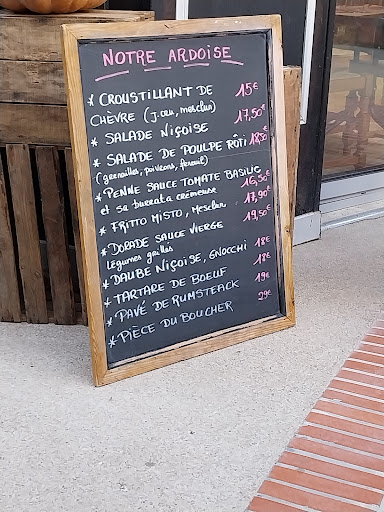 NOTRE ARDOISE
* CROUSTILLANT DE 15€
CHÈVRE (J. cru, mesclun)
* SALADE NIÇOISE 17,50€
* SALADE DE POULPE RÔTI 18,5€
(grenailles, poivrons, fenouil)
* PENNE SAUCE TOMATE BASILIC
et sa burrata crémeuse 16,50€
* FRITTO MISTO, Mesclun 17,90€
* DORADE SAUCE VIERGE 19,50€
légumes grillés
* DAUBE NIÇOISE, GNOCCHI 18€
* TARTARE DE BOEUF 18€
* PAVÉ DE RUMSTEACK 19€
* PIÈCE DU BOUCHER 29€